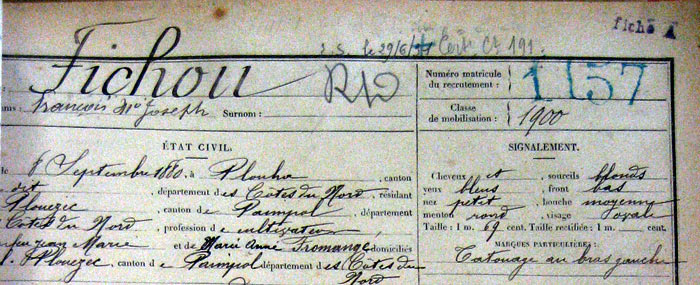 fiché A
le 29/6/
Fichou
Numéro matricule
du recrutement :
1157
François Joseph Surnom :
Classe
de mobilisation :
1900
ÉTAT CIVIL.
SIGNALEMENT.
Septembre 1880, à Plouha, canton
Cheveux et sourcils blonds
dit, département des Côtes du Nord, résidant
yeux bleus, front bas
Plouezec, canton de Paimpol, département
nez petit, bouche moyenne
Côtes du Nord, profession de cultivateur
menton rond, visage ovale
Taille : 1 m. 69 cent. Taille rectifiée : 1 m. cent.
feu jean Marie et de Marie Anne Fromange domiciliés
MARQUES PARTICULIÈRES :
Plouezec, canton de Paimpol département des Côtes du
Tatouage au bras gauche
Nord